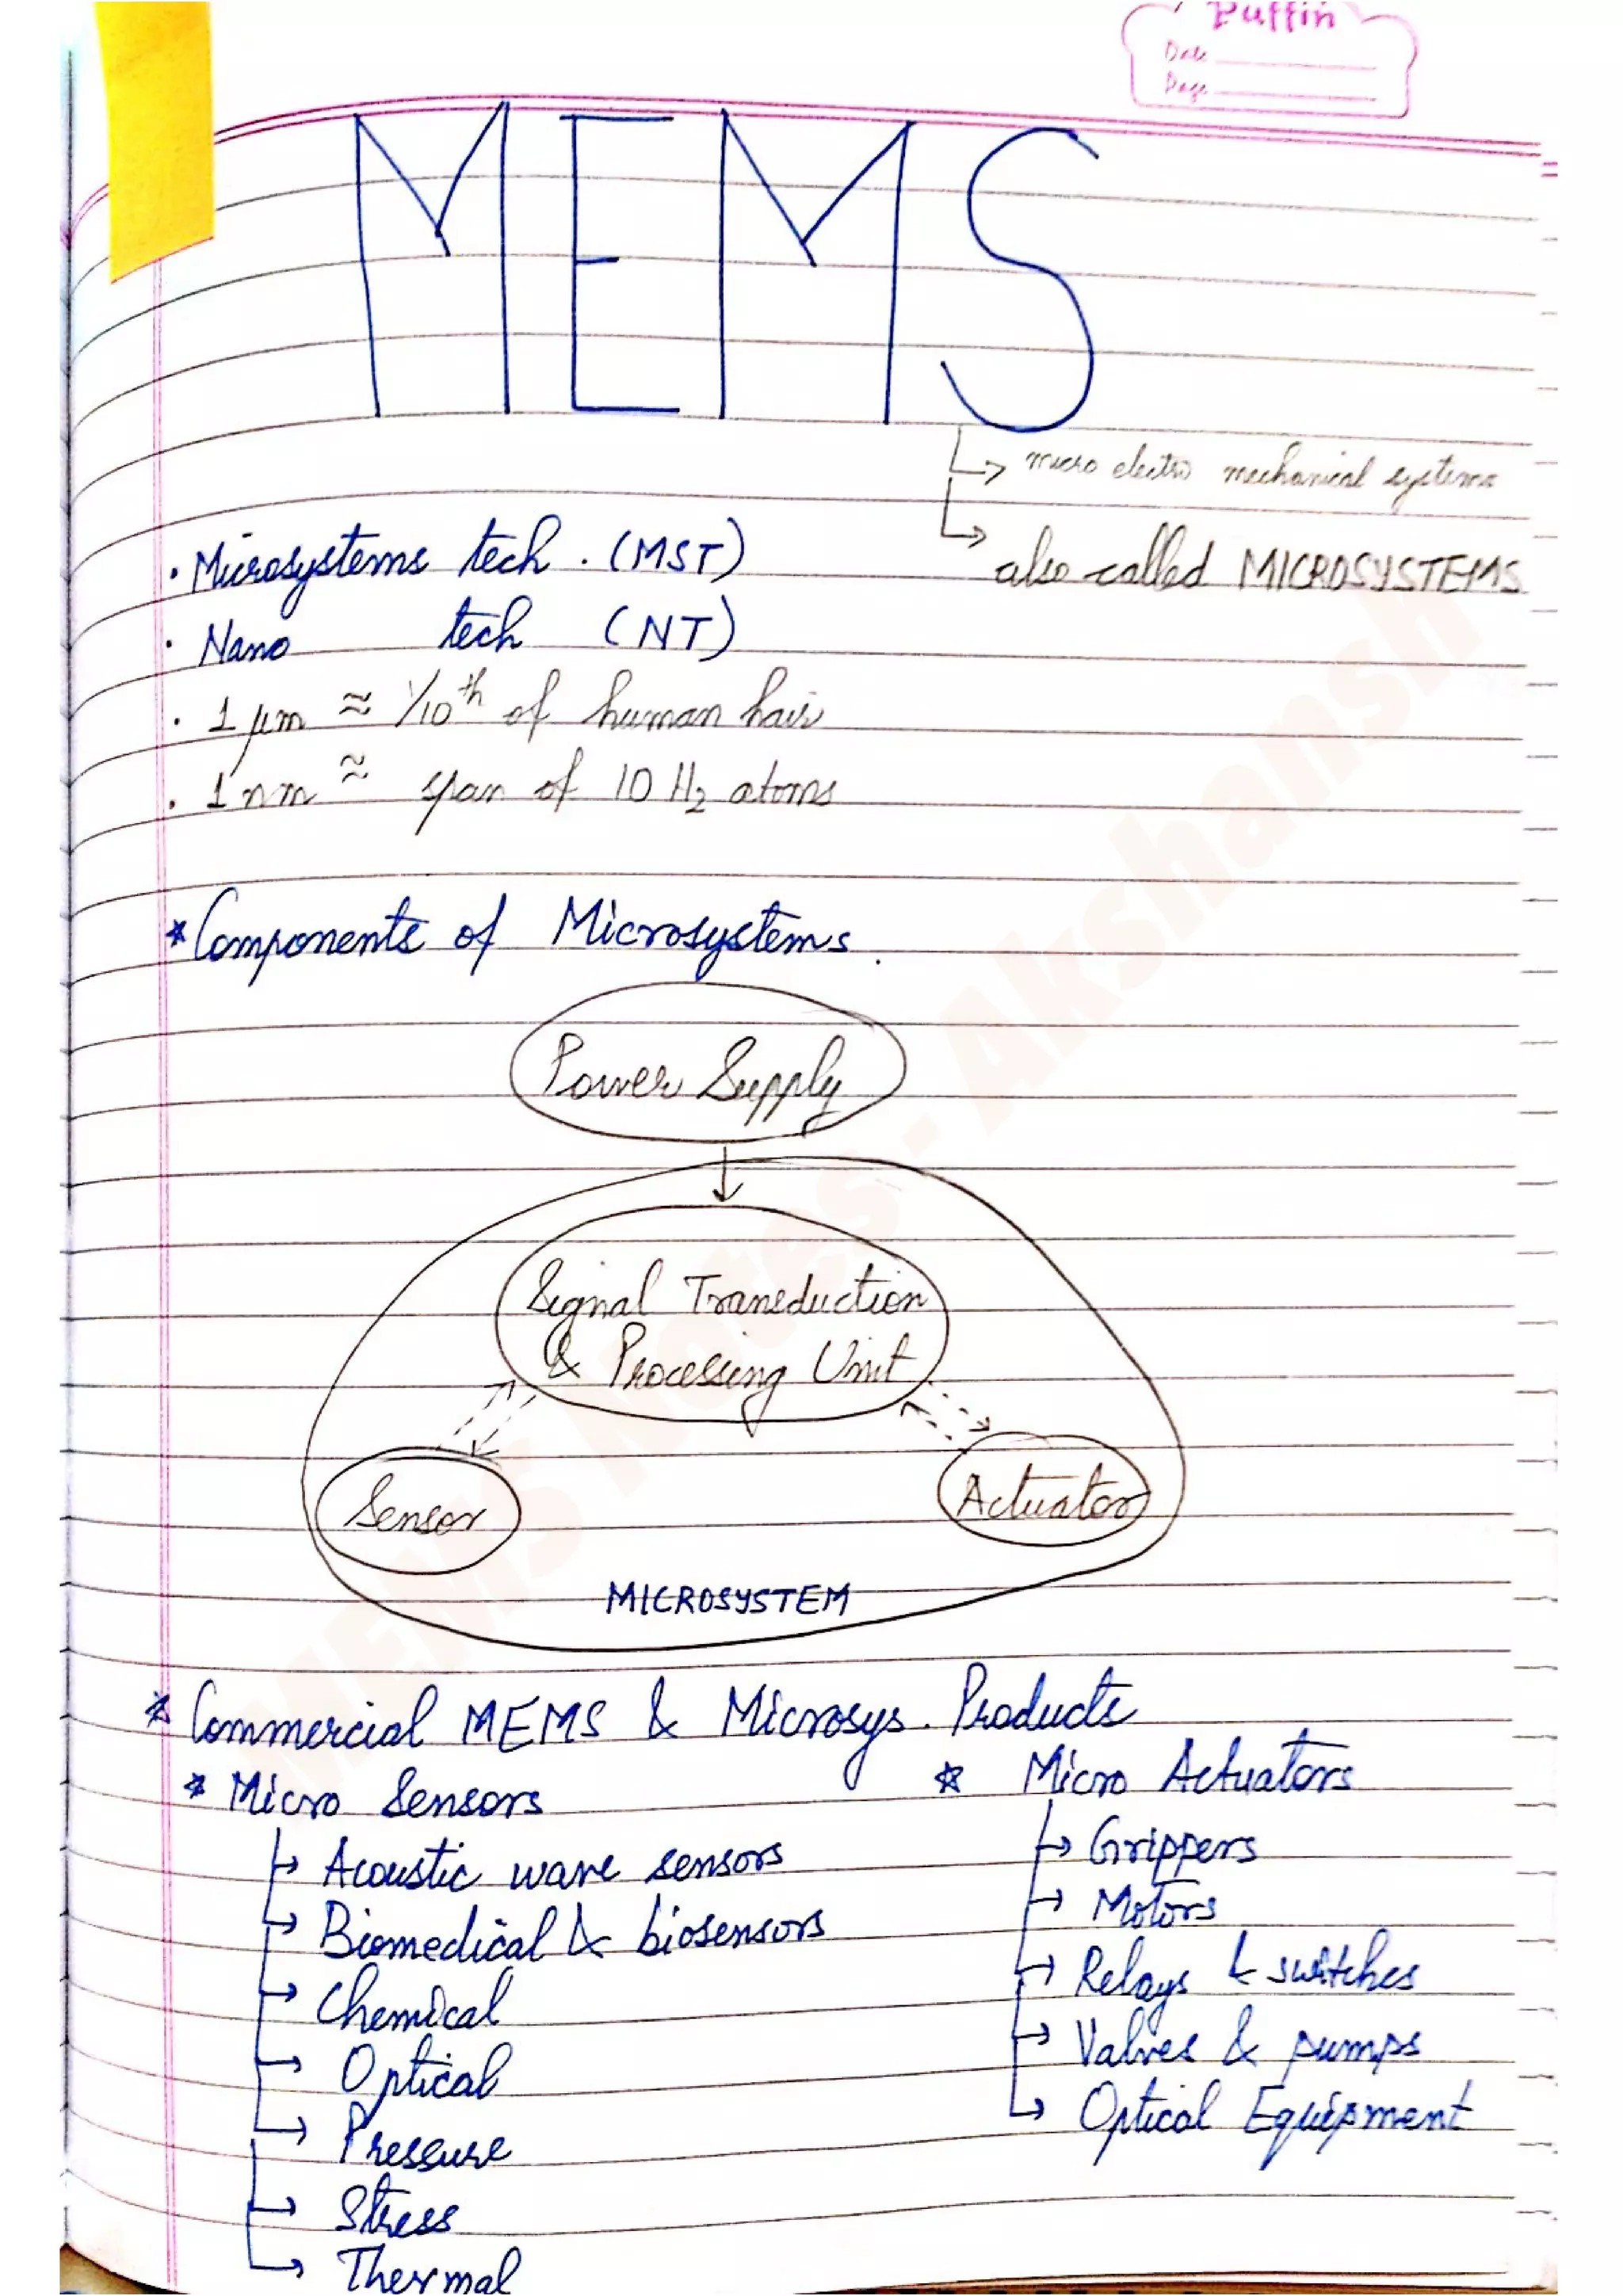 Puffin
Date
Page
MEMS
micro electro mechanical systems
also called MICROSYSTEMS
• Microsystems tech. (MST)
• Nano tech (NT)
• 1 μm ≈ 1/10th of human hair
• 1 nm ≈ span of 10 H₂ atoms
* Components of Microsystems.
Power Supply
Signal Transduction
& Processing Unit
Sensor
Actuator
MICROSYSTEM
* Commercial MEMS & Microsys. Products
* Micro Sensors
↳ Acoustic wave sensors
↳ Biomedical & biosensors
↳ Chemical
↳ Optical
↳ Pressure
↳ Stress
↳ Thermal
* Micro Actuators
↳ Grippers
↳ Motors
↳ Relays & switches
↳ Valves & pumps
↳ Optical Equipment
MEMS Notes - Akshansh